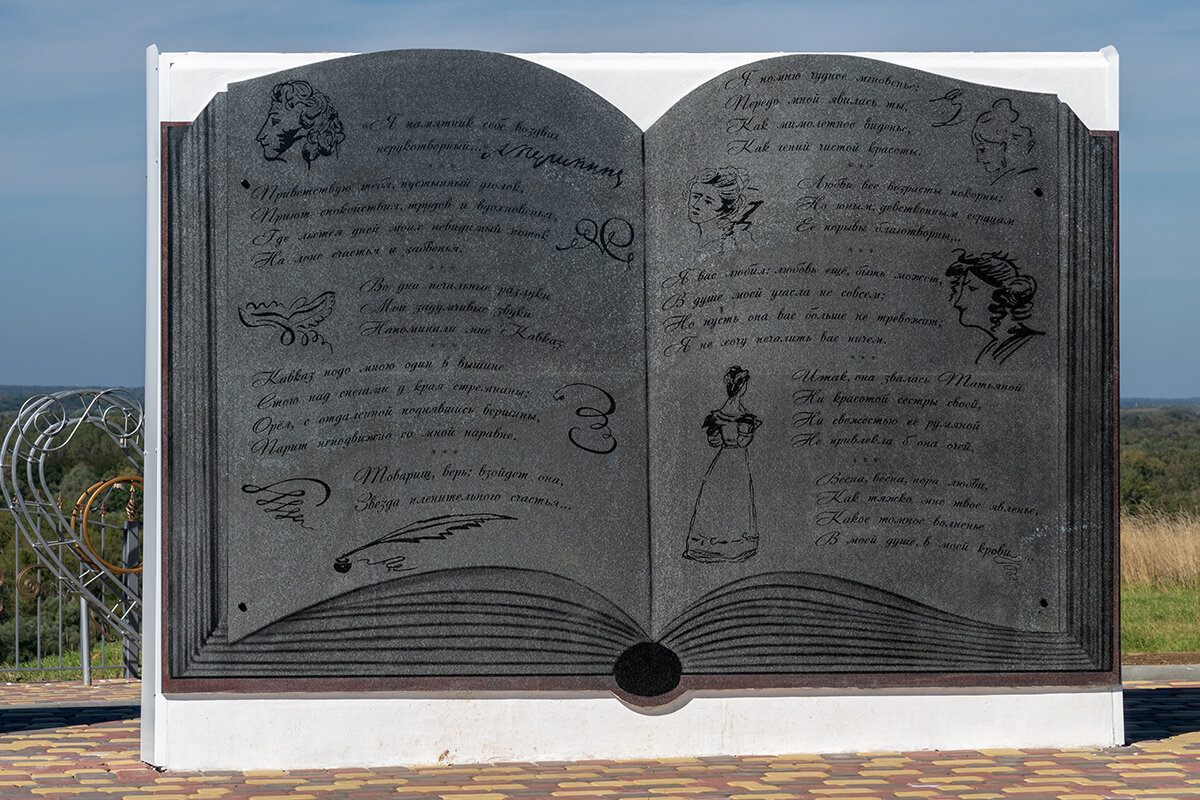 «Я памятник себе воздвиг
нерукотворный...»
А Пушкинъ
Приветствую тебя, пустынный уголок,
Приют спокойствия, трудов и вдохновенья,
Где льётся дней моих невидимый поток
На лоне счастья и забвенья.
***
Во дни печальные разлуки
Мои задумчивые звуки
Напоминали мне Кавказ
***
Кавказ подо мною один в вышине
Стою над снегами у края стремнины;
Орёл, с отдаленной поднявшись вершины,
Парит неподвижно со мной наравне.
***
Товарищ, верь: взойдет она,
Звезда пленительного счастья...
Я помню чудное мгновенье:
Передо мной явилась ты,
Как мимолетное виденье,
Как гений чистой красоты.
***
Любви все возрасты покорны;
Но юным, девственным сердцам
Её порывы благотворны,..
***
Я вас любил: любовь ещё, быть может,
В душе моей угасла не совсем;
Но пусть она вас больше не тревожит;
Я не хочу печалить вас ничем.
***
Итак, она звалась Татьяной
Ни красотой сестры своей,
Ни свежестью её румяной
Не привлекла б она очей.
***
Весна, весна, пора любви,
Как тяжко мне твое явленье,
Какое томное волненье
В моей душе, в моей крови...